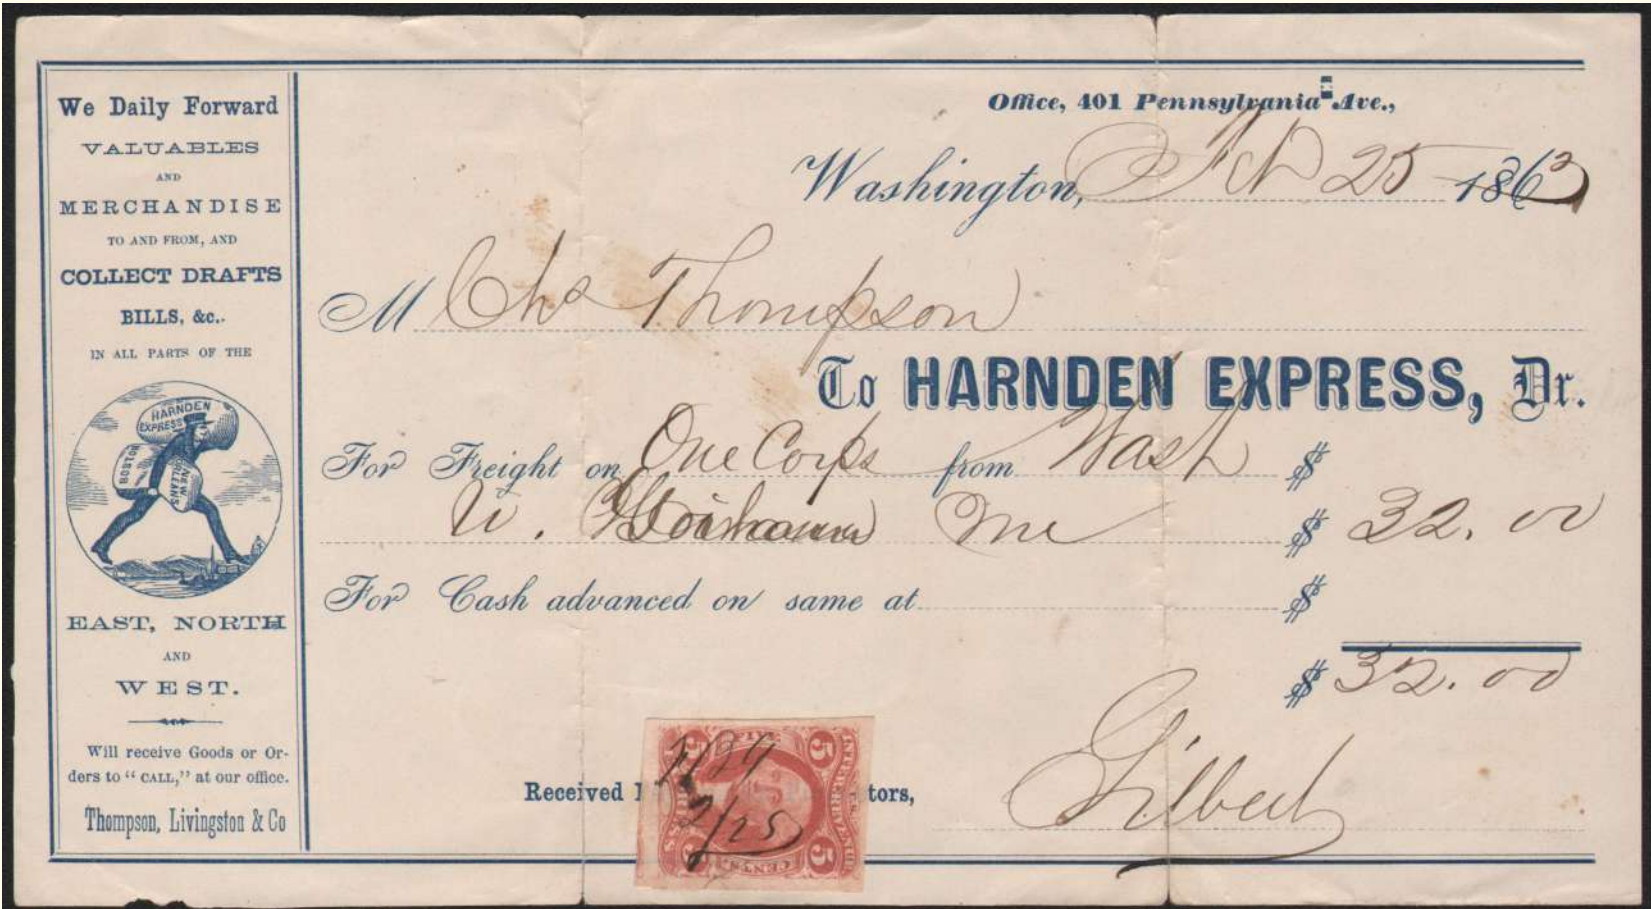 We Daily Forward
VALUABLES
AND
MERCHANDISE
TO AND FROM, AND
COLLECT DRAFTS
BILLS, &c.
IN ALL PARTS OF THE
HARNDEN
EXPRESS
BOSTON
NEW
ORLEANS
EAST, NORTH
AND
WEST.
Will receive Goods or Or-
ders to "CALL," at our office.
Thompson, Livingston & Co
Office, 401 Pennsylvania Ave.,
Washington, Feb 25 1863
M Chs Thompson
To HARNDEN EXPRESS, Dr.
For Freight on One Corps from Wash $
W. Gorham Me $ 32.00
For Cash advanced on same at $
$ 32.00
Received tors,
Gilbert
5 5
2/25
CENTS
5 5